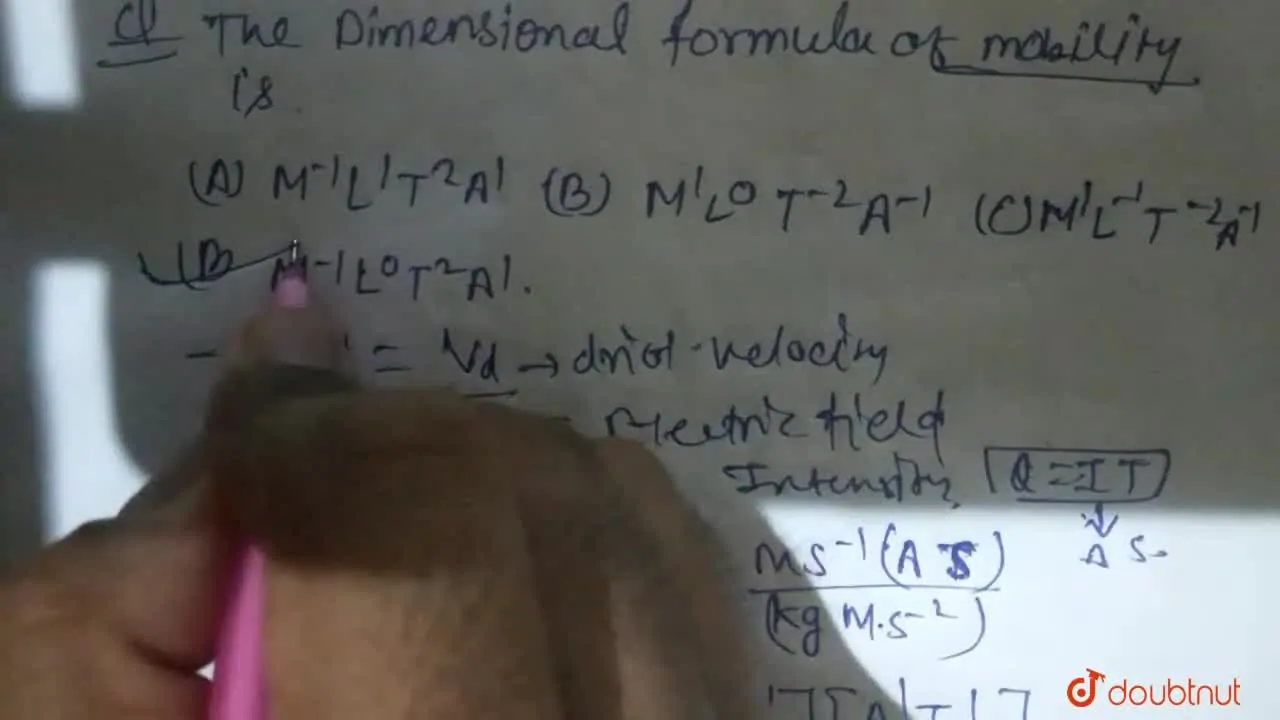 Q The Dimensional formula of mobility
is
(A) M⁻¹L¹T²A¹ (B) M¹L⁰T⁻²A⁻¹ (C) M¹L⁻¹T⁻²A⁻¹
(D M⁻¹L⁰T²A¹.
= Vd → drift velocity
Electric field
Intensity Q = IT
A S
ms⁻¹(A S)
(kg m.s⁻²)
doubtnut